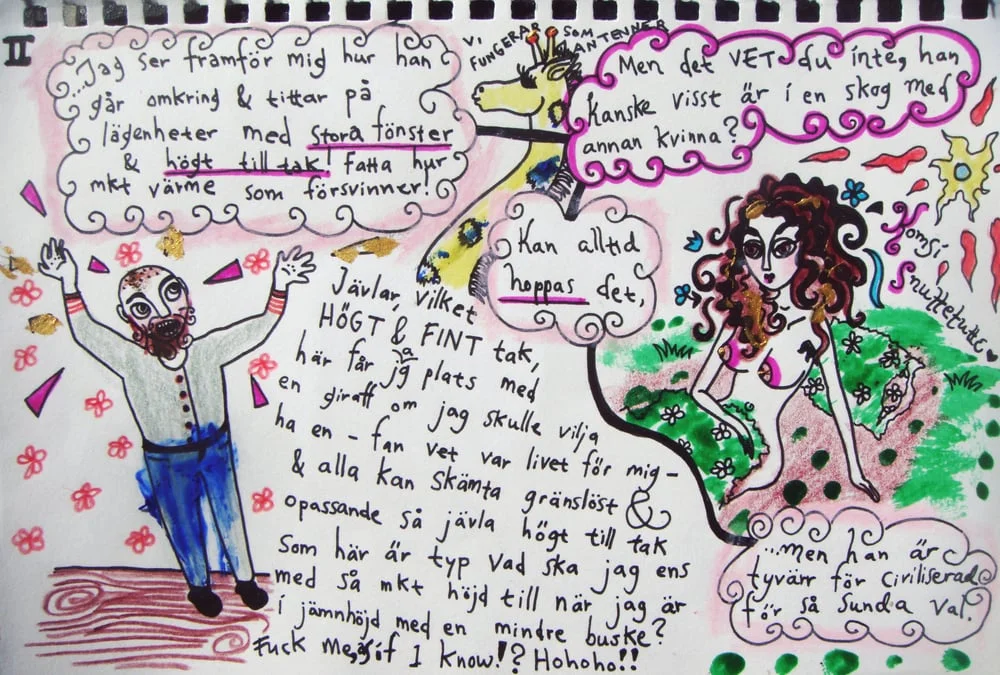 II
...Jag ser framför mig hur han
går omkring & tittar på
lägenheter med stora fönster
& högt till tak! Fatta hur
mkt värme som försvinner!
VI
FUNGERAR SOM
ANTENNER
Men det VET du inte, han
kanske visst är i en skog med
annan kvinna?
Kan alltid
hoppas det,
Komsi
Snuttetutte
Jävlar, vilket
HÖGT & FINT tak,
här får ja
jg plats med
en giraff om jag skulle vilja
ha en - fan vet var livet för mig -
& alla kan skämta gränslöst &
opassande så jävla högt till tak
som här är typ vad ska jag ens
med så mkt höjd till när jag är
i jämnhöjd med en mindre buske?
Fuck me, as if I know!? Hohoho!!
...men han är
tyvärr för civiliserad
för så sunda val.